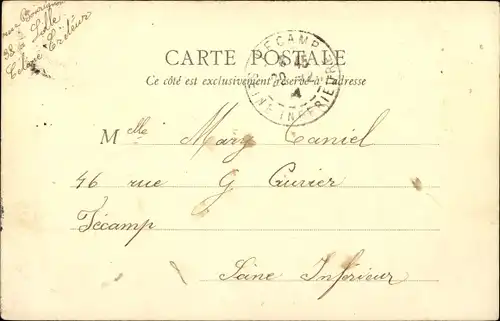 Lille
CARTE POSTALE
Ce côté est exclusivement réservé à l'adresse
FECAMP
SEINE INFERIEURE
Mlle Mary Caniel
46 rue G Cuvier
Fécamp
Seine Inférieur